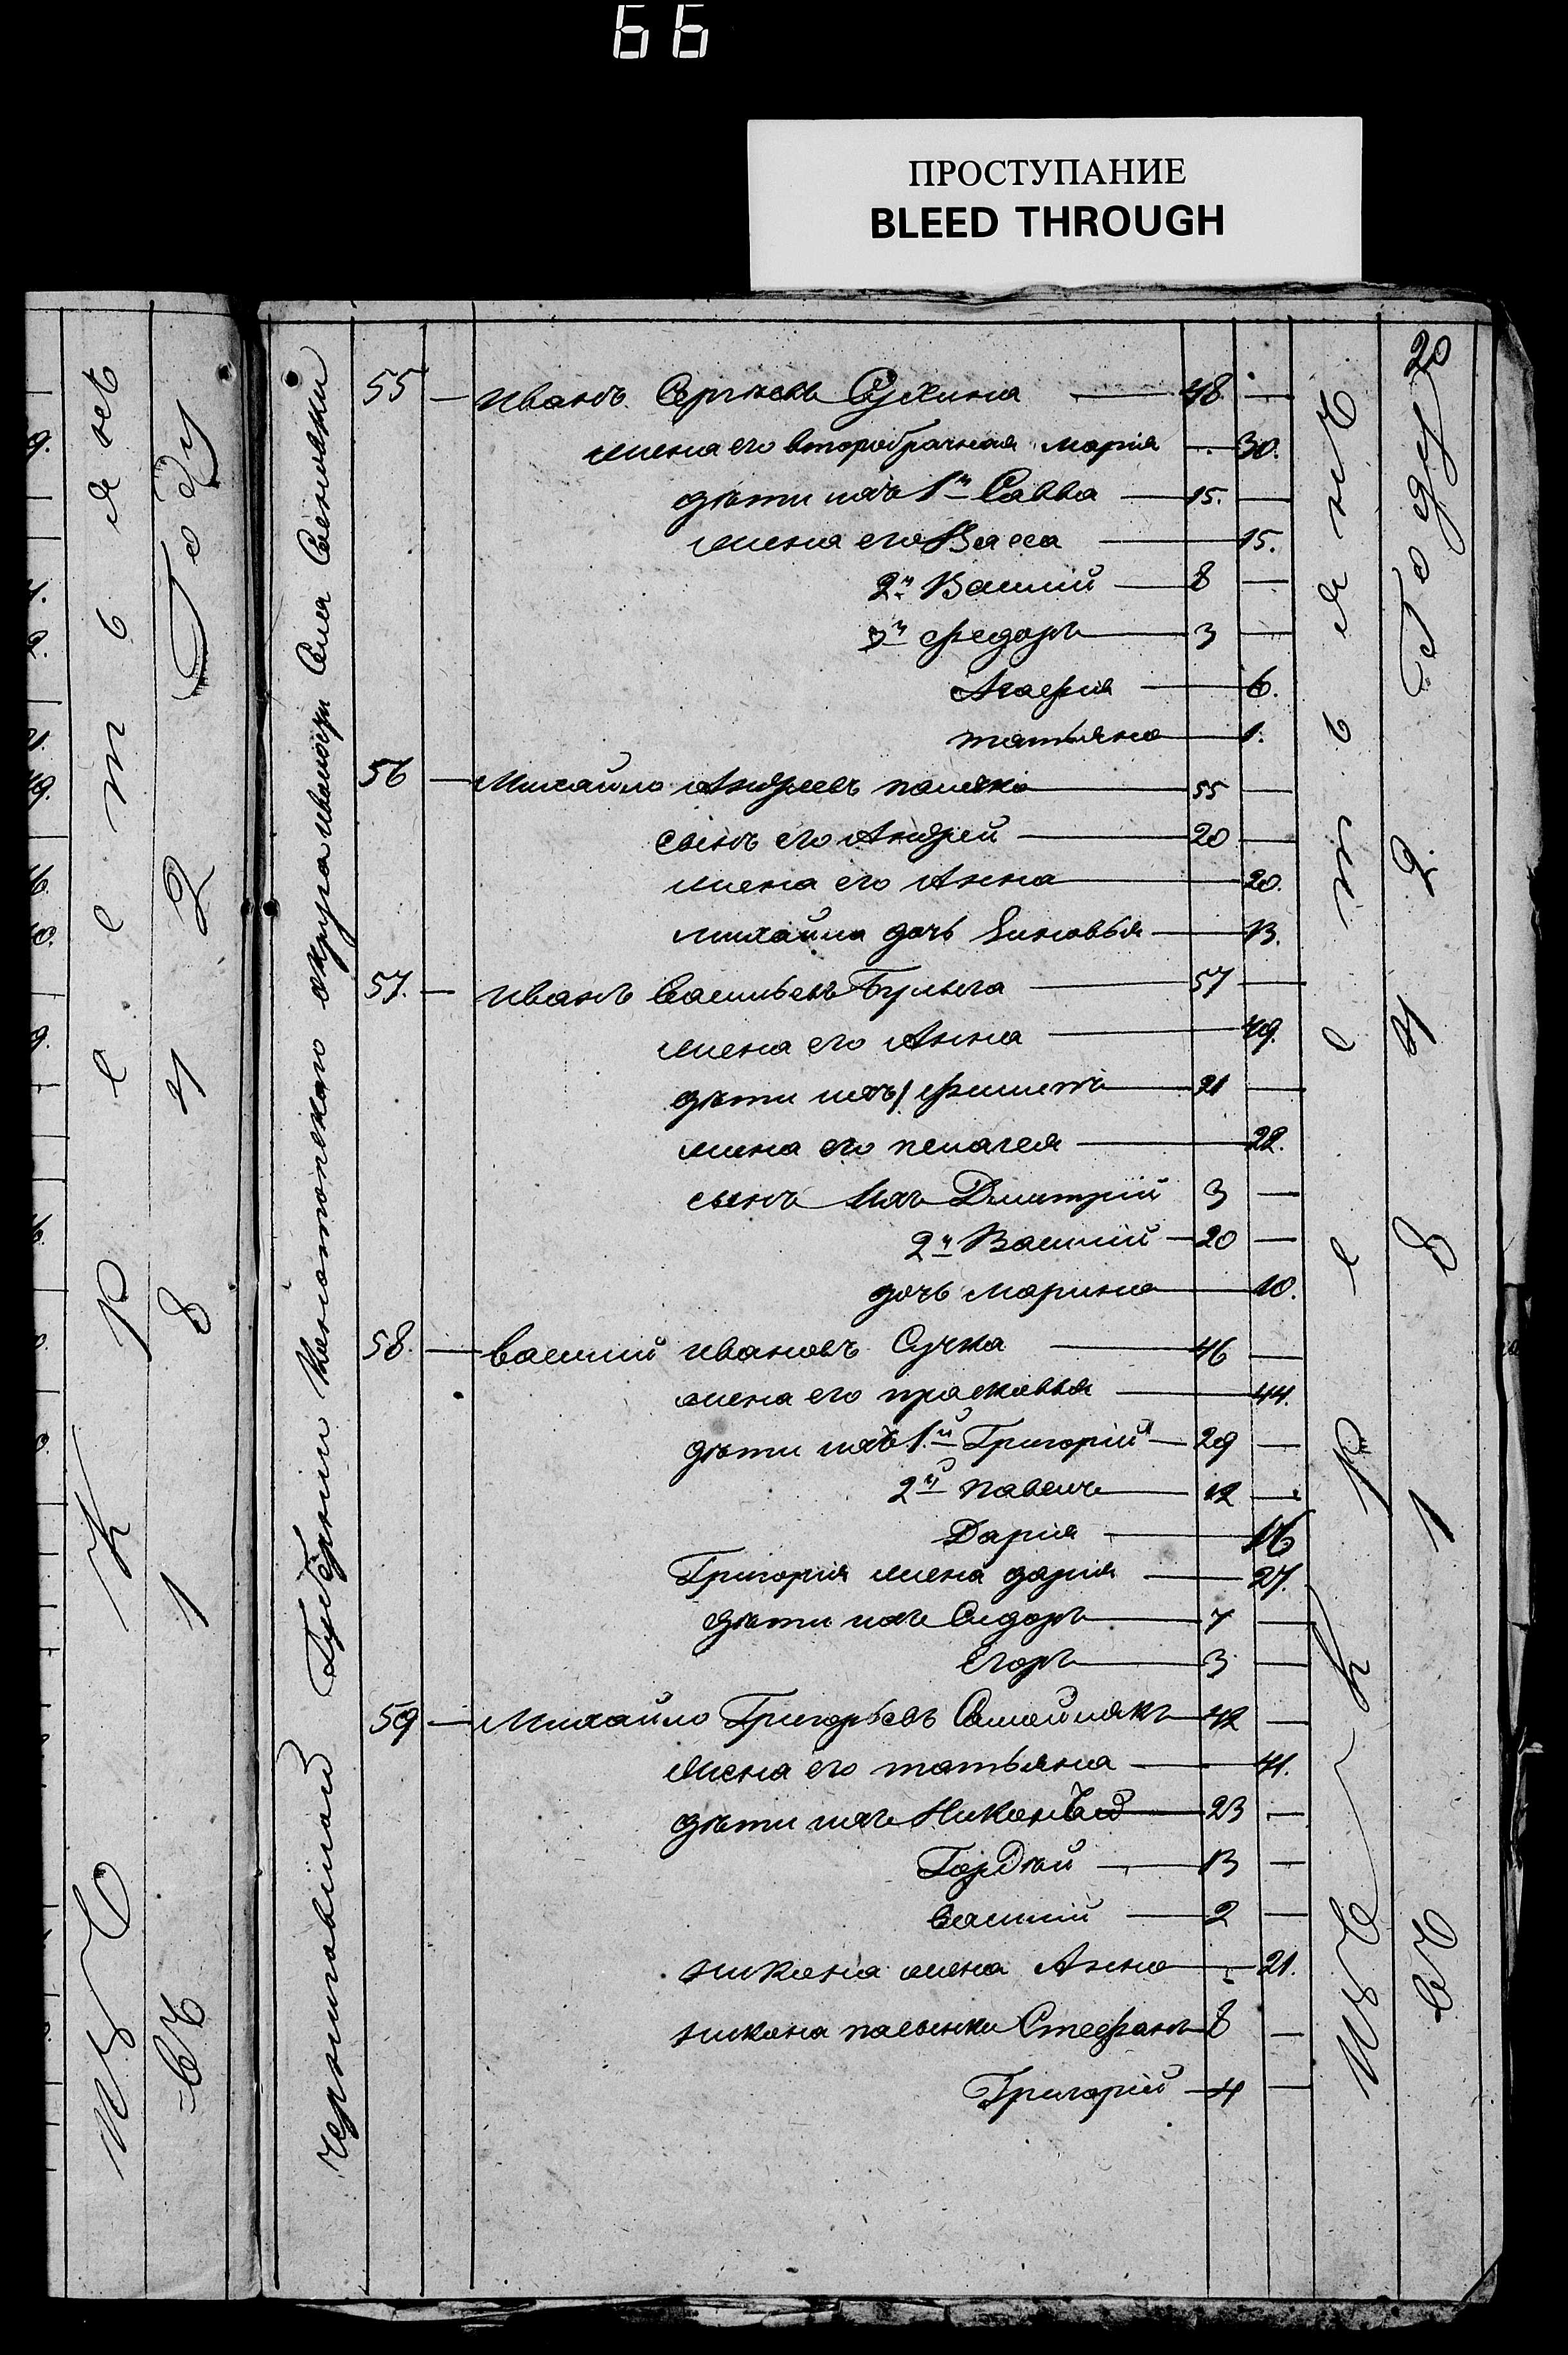 66
ПРОСТУПАНИЕ
BLEED THROUGH
20
Черниговской Губернии Конотопского округа
55 — Иванъ Сергѣевъ — 48 —
жена его второбрачная мария — 30.
дѣти ихъ 1й Савва — 15. —
жена его Васса — 15.
2й Василий — 8 —
3й Федоръ — 3 —
Агафия — 6.
татьяна — 1.
56 — Михайло Андреевъ — 55 —
сынъ его Андрей — 20 —
жена его Анна — 20.
михайла дочь Зиновья — 13.
57. — иванъ васильевъ — 57 —
жена его Анна — 49.
дѣти ихъ 1 Филипъ — 21 —
жена его пелагея — 22.
сынъ ихъ Дмитрий 3 —
2й Василий — 20 —
дочь марина — 10.
58. — василий ивановъ Сучка — 46 —
жена его прасковья — 44.
дѣти ихъ 1й Григорий — 29 —
2й павелъ — 12 —
Дария — 16
Григория жена дария — 27.
дѣти ихъ Сидоръ — 7 —
Егоръ — 3 —
59 — Михайло Григорьевъ Самойлякъ — 42 —
жена его татьяна — 41.
дѣти ихъ Никонъ — 23 —
Гордѣй — 13 —
василий — 2 —
никона жена Анна — 21.
никона пасынки Стефанъ — 8 —
Григорий — 4 —
изъ крестьянъ
въ 1842 Году